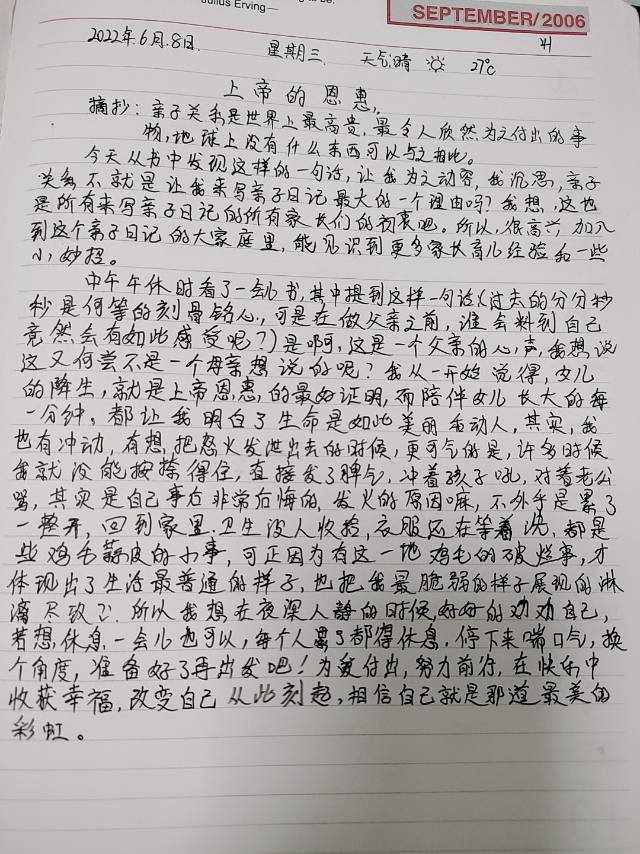 Julius Erving—
SEPTEMBER/2006
2022年6月8日. 星期三. 天气:晴 27℃
上帝的恩惠,
摘抄:亲子关系是世界上最高贵,最令人欣然为之付出的事
物,地球上没有什么东西可以与之相比。
今天从书中发现这样的一句话,让我为之动容,我沉思,亲子
关系不就是让我来写亲子日记最大的一个理由吗?我想,这也
是所有来写亲子日记的所有家长们的初衷吧。所以,很高兴,加入
到这个亲子日记的大家庭里,能见识到更多家长育儿经验和一些
小妙招。
中午午休时看了一会儿书,其中提到这样一句话(过去的分分秒
秒是何等的刻骨铭心,可是在做父亲之前,谁会料到自己
竟然会有如此感受呢?)是啊,这是一个父亲的心声,我想说
这又何尝不是一个母亲想说的呢?我从一开始觉得,女儿
的降生,就是上帝恩惠的最好证明,而陪伴女儿长大的每
一分钟,都让我明白了生命是如此美丽和动人,其实,我
也有冲动,有想把怒火发泄出去的时候,更可气的是,许多时候
我就没能按捺得住,直接发了脾气,冲着孩子吼,对着老公
骂,其实是自己事后非常后悔的,发火的原因嘛,不外乎是累了
一整天,回到家里,卫生没人收拾,衣服还在等着洗,都是
些鸡毛蒜皮的小事,可正因为有这一地鸡毛的破烂事,才
体现出了生活最普通的样子,也把我最脆弱的样子展现的淋
漓尽致了。所以我想在夜深人静的时候,好好的劝劝自己,
若想休息一会儿也可以,每个人累了都得休息,停下来喘口气,换
个角度,准备好了再出发吧!为爱付出,努力前行,在快乐中
收获幸福,改变自己从此刻起,相信自己就是那道最美的
彩虹。